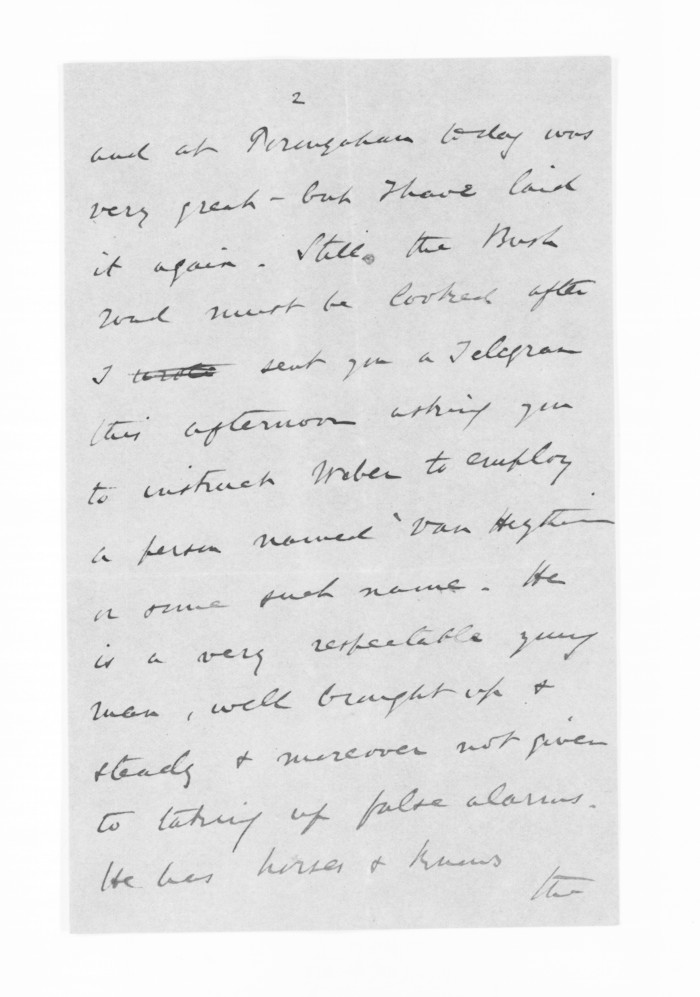 2
and at Porangahau today was
very great - but I have laid
it again. Still, the Bush
road must be looked after
I wrote sent you a Telegram
this afternoon asking you
to instruct Weber to employ
a person named "Van
or some such name. He
is a very respectable young
man, well brought up &
steady & moreover not given
to taking up false alarms.
He has horses & knows
the